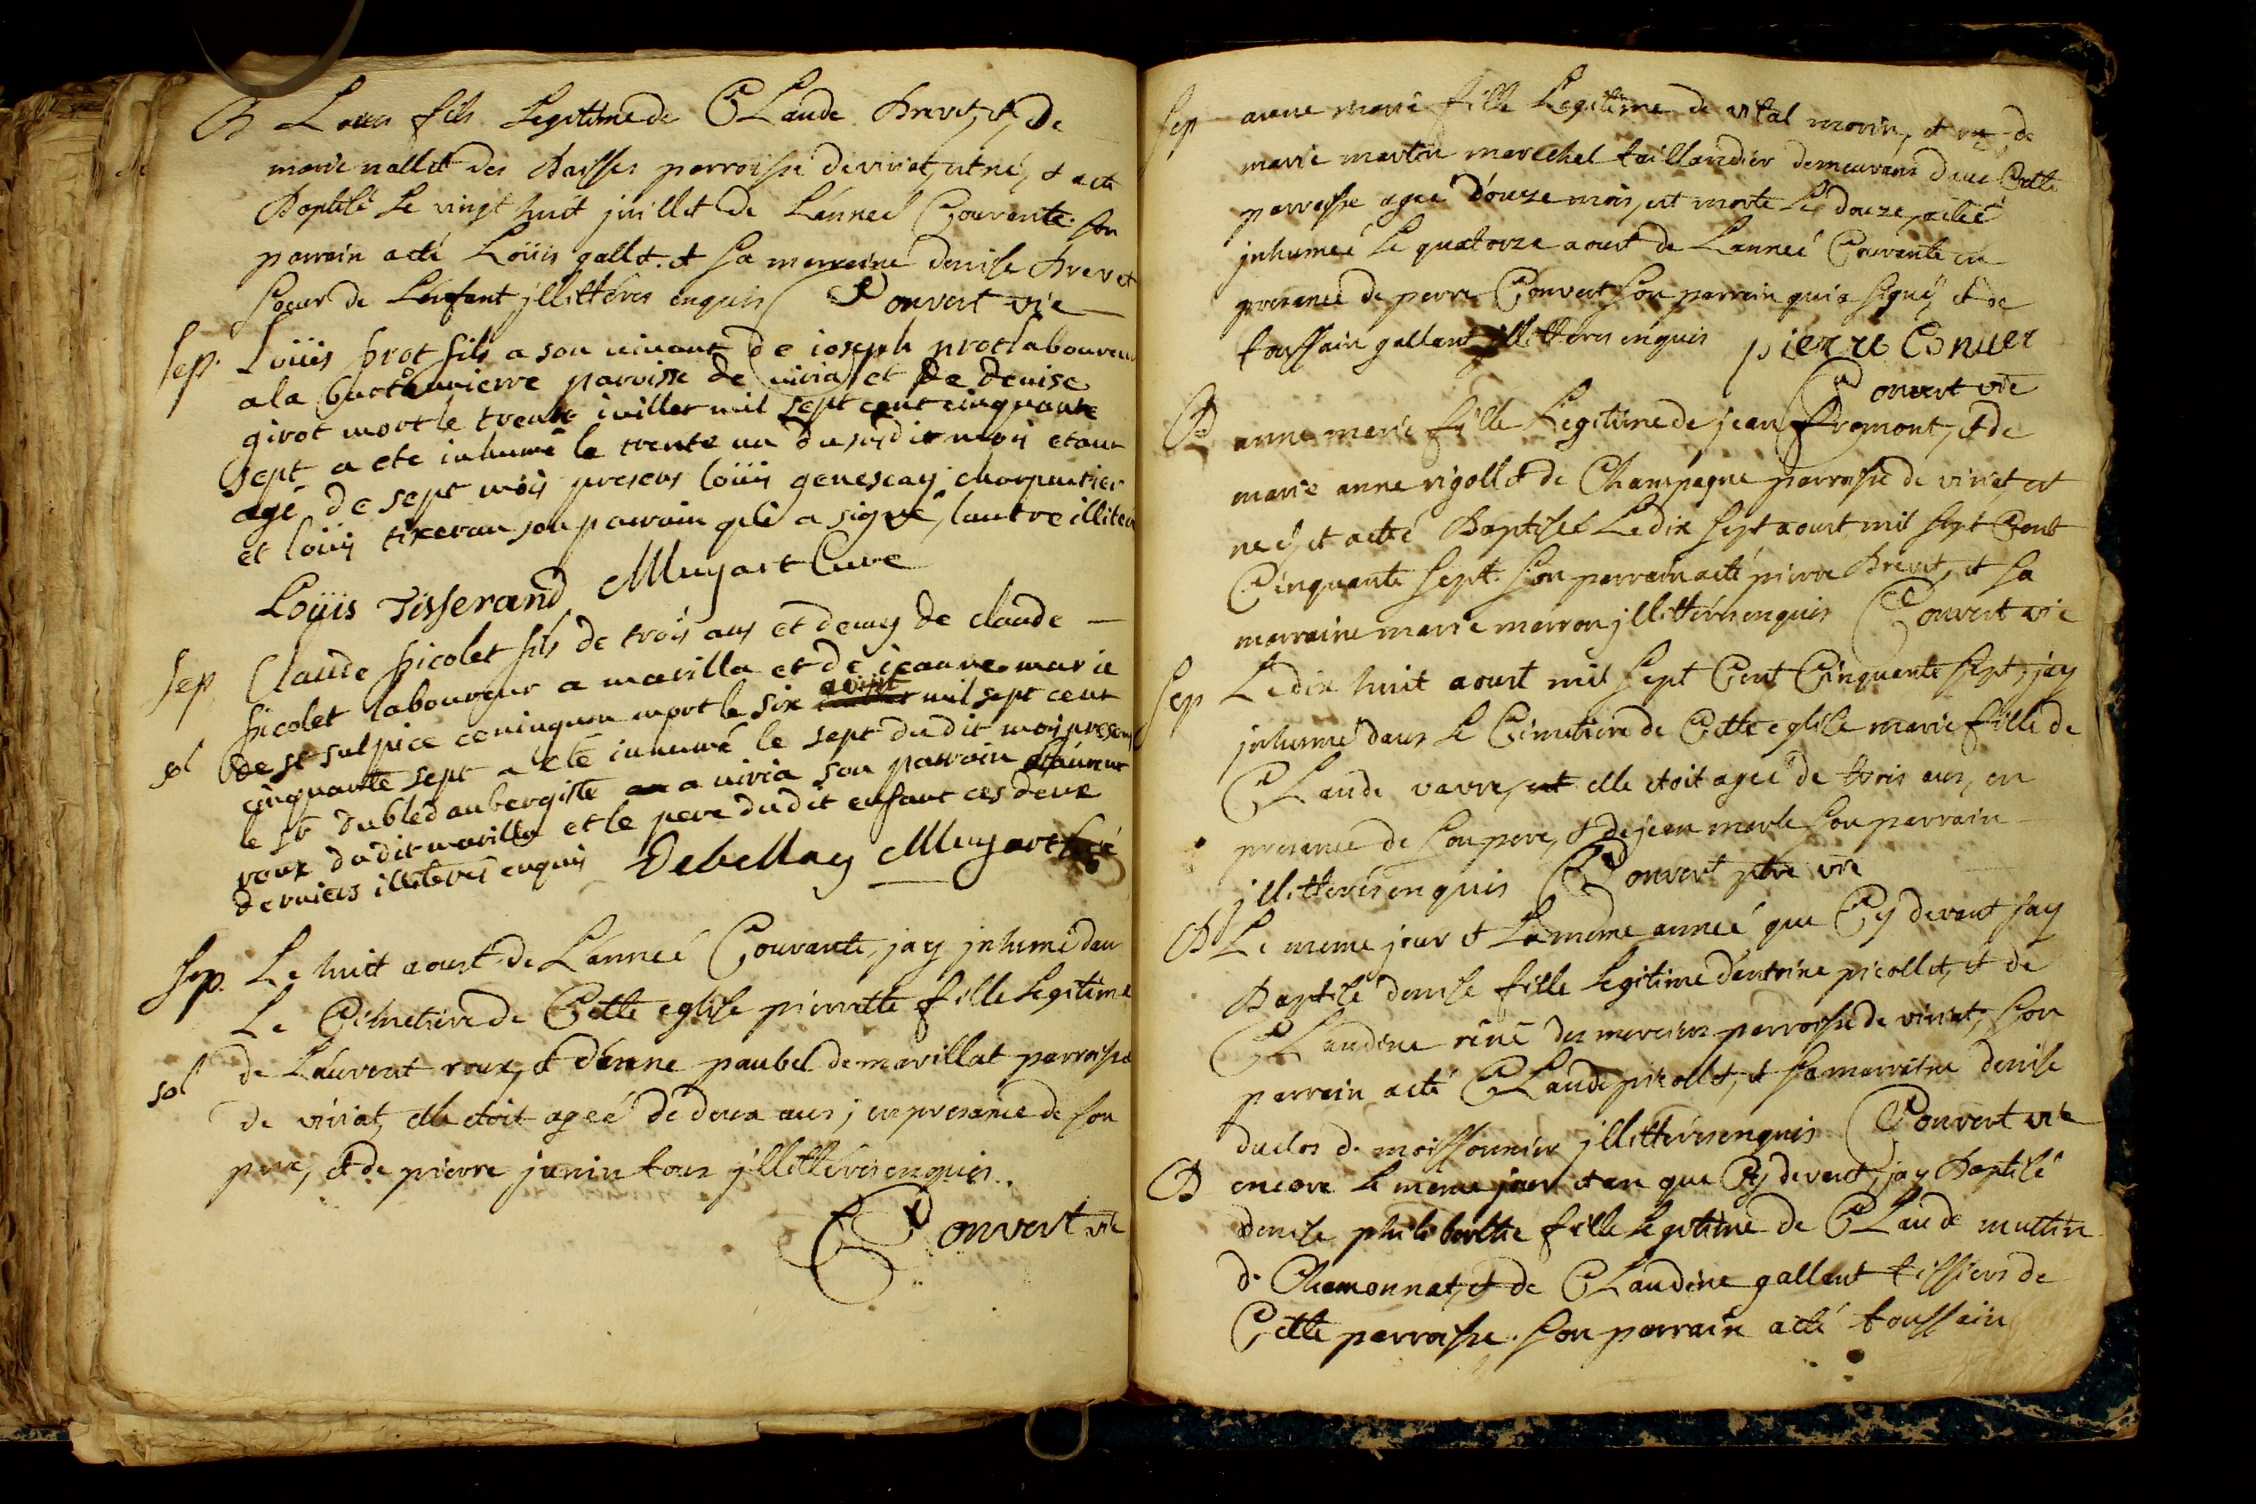 B Louis fils Legitime de CLaude Brevet, et de
marie nallet des Baisses parroisse de viriat, est né, et a eté
Baptisé Le vingt huit juillet de L'anneé Courante. son
parrain a eté Loüis gallet. et sa marraine denise Brevet
soeur de L'enfant jllittéres enquis Convert vre
sep. Loüis prot fils a son vivant de ioseph prot laboureur
a la paroisse de viria et de Denise
girot mort le trente iuillet mil sept cent cinquante
sept a eté inhumé le trente un du susdit mois etant
agé de sept mois presens loüis charpentier
et loüis tixeran son parrain qui a signé, lautre illiteré
Loüis Tisserand Muyart Curé
sep Claude picolet fils de trois ans et demy de claude
picolet laboureur a marilla et de ieanne marie
de st sulpice mort le six aoust mil sept cent
sol cinquante sept a eté inhumé le sept dudit mois presens
le sr dubled aubergiste a viria son parrain laurent
roux dudit marilla et le pere dudit enfant ces deux
derniers illiterés enquis Debellay Muyart Curé
sep. Le huit aoust de L'anneé Courante, jay jnhumé dans
Le Cimetiere de Cette eglise pierrette fille Legitime
de Laurent roux, et d'anne paubel de marillat parroisse
sol de viriat, elle etoit ageé de deux ans, en presance de son
pere, et de pierre janin tous jllittérés enquis.
Convert vre
sep anne marie fille Legitime de vital morin, et de
marie martin marechal taillandier demeurans dans Cette
parroisse ageé d'onze mois, est morte Le douze, a eteé
jnhumeé Le quatorze aoust de L'anneé Courante en
presance de pierre Convert son parrain qui a signé, et de
toussain gallant jllittérés enquis pierre Conver
Convert vre
B anne marie fille Legitime de jean fromont, et de
marie anne rigollet de Champagne parroisse de viriat, est
neé, et a eté Baptiseé Le dix sept aoust mil sept Cent
Cinquante sept. son parrain a eté pierre Brevet, et sa
marraine marie marron jllittérés enquis Convert vre
sep Le dix huit aoust mil sept Cent Cinquante sept, jay
jnhumé dans Le Cimetiere de Cette eglise marie fille de
CLaude vavre, elle etoit ageé de trois ans, en
presance de son pere, et de jean merle son parrain
jllittérés enquis Convert ptre vre
B Le meme jour et La meme anneé que Cy devant jay
Baptisé denise fille Legitime d'antoine picollet, et de
CLaudine réné des merciers parroisse de viriat, son
parrain a eté CLaude picollet, et sa marraine denise
duclos de moissonnier jllittérés enquis Convert vre
B encore Le meme jour et an que Cy devant, jay Baptisé
denise philiberthe fille Legitime de CLaude muttin
de Chamonnat, et de CLaudine gallant tissiers de
Cette parroisse. son parrain a eté toussain